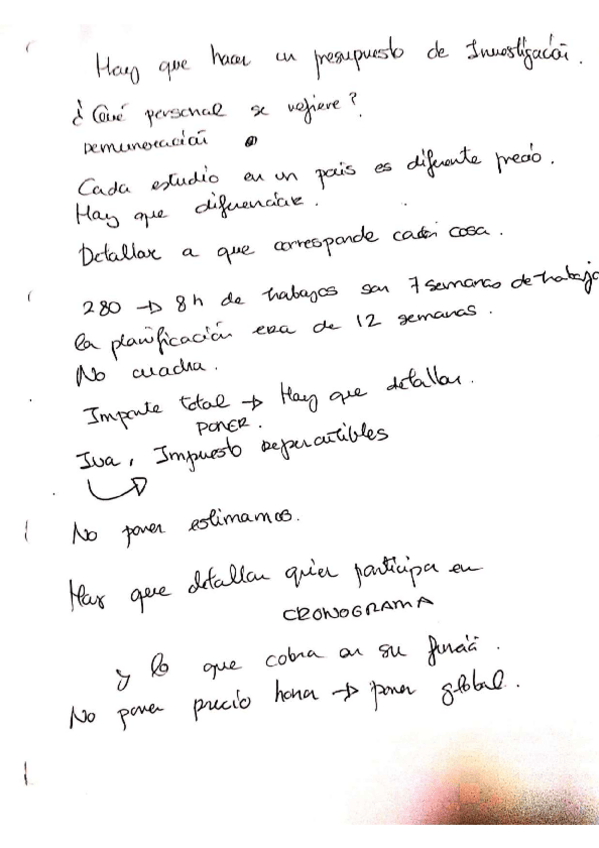 Hay que hacer un presupuesto de Investigación.
¿Qué personal se refiere?
Remuneración
Cada estudio en un pais es diferente precio.
Hay que diferenciar.
Detallar a que corresponde cada cosa.
280 → 8h de trabajos son 7 semanas de trabajo
la planificación era de 12 semanas.
No cuadra.
Importe total → Hay que detallar.
PONER.
Iva, Impuesto repercutibles
No poner estimamos.
Hay que detallar quien participa en
CRONOGRAMA
y lo que cobra en su función.
No poner precio hora → poner global.